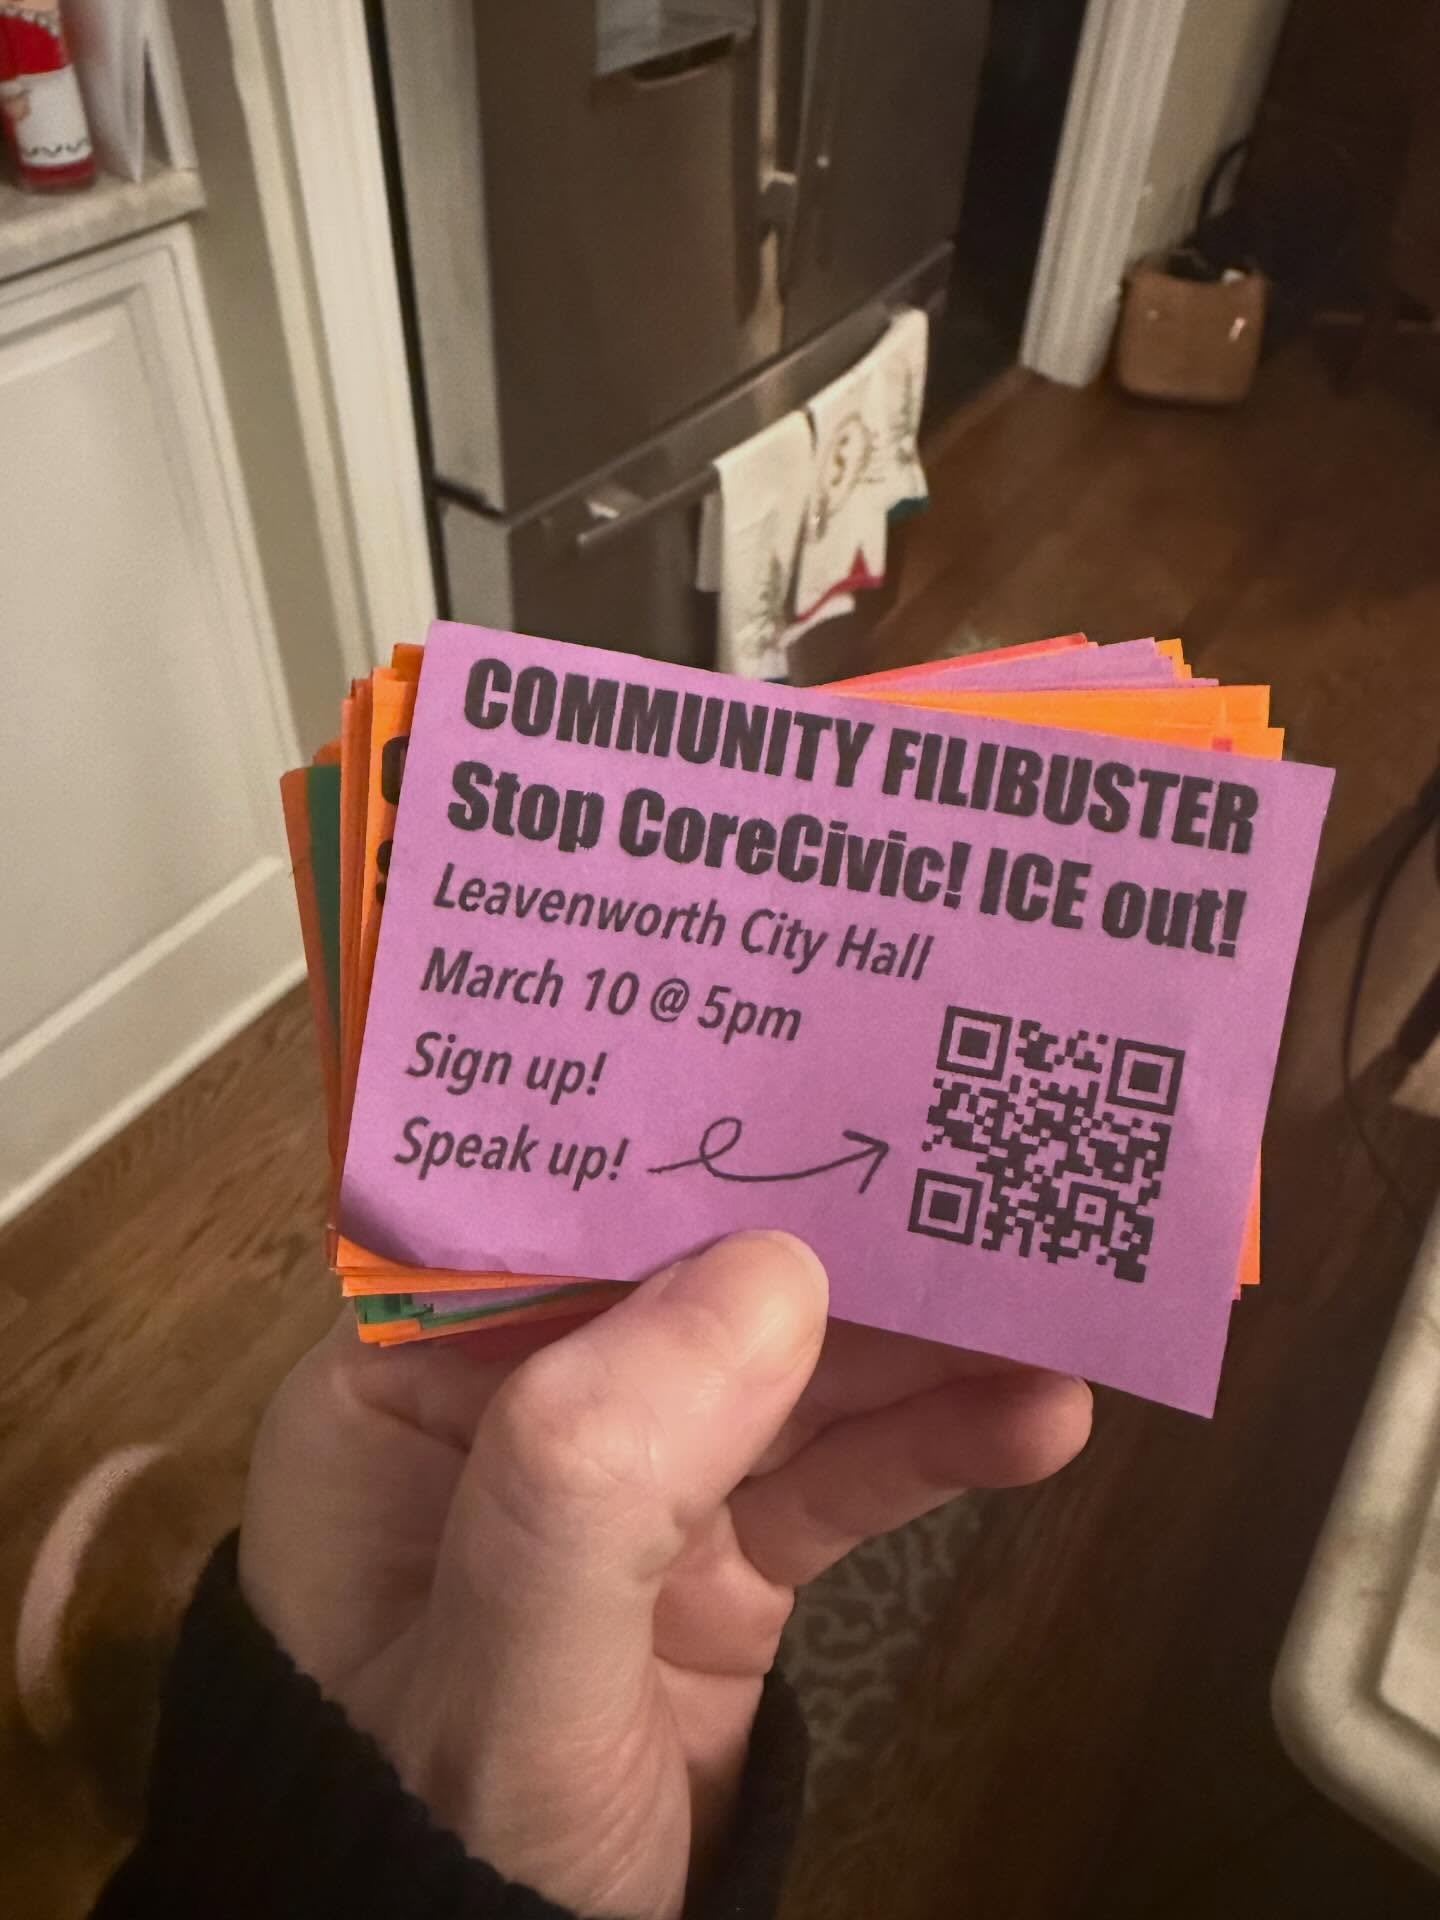 COMMUNITY FILIBUSTER
Stop CoreCivic! ICE out!
Leavenworth City Hall
March 10 @ 5pm
Sign up!
Speak up!